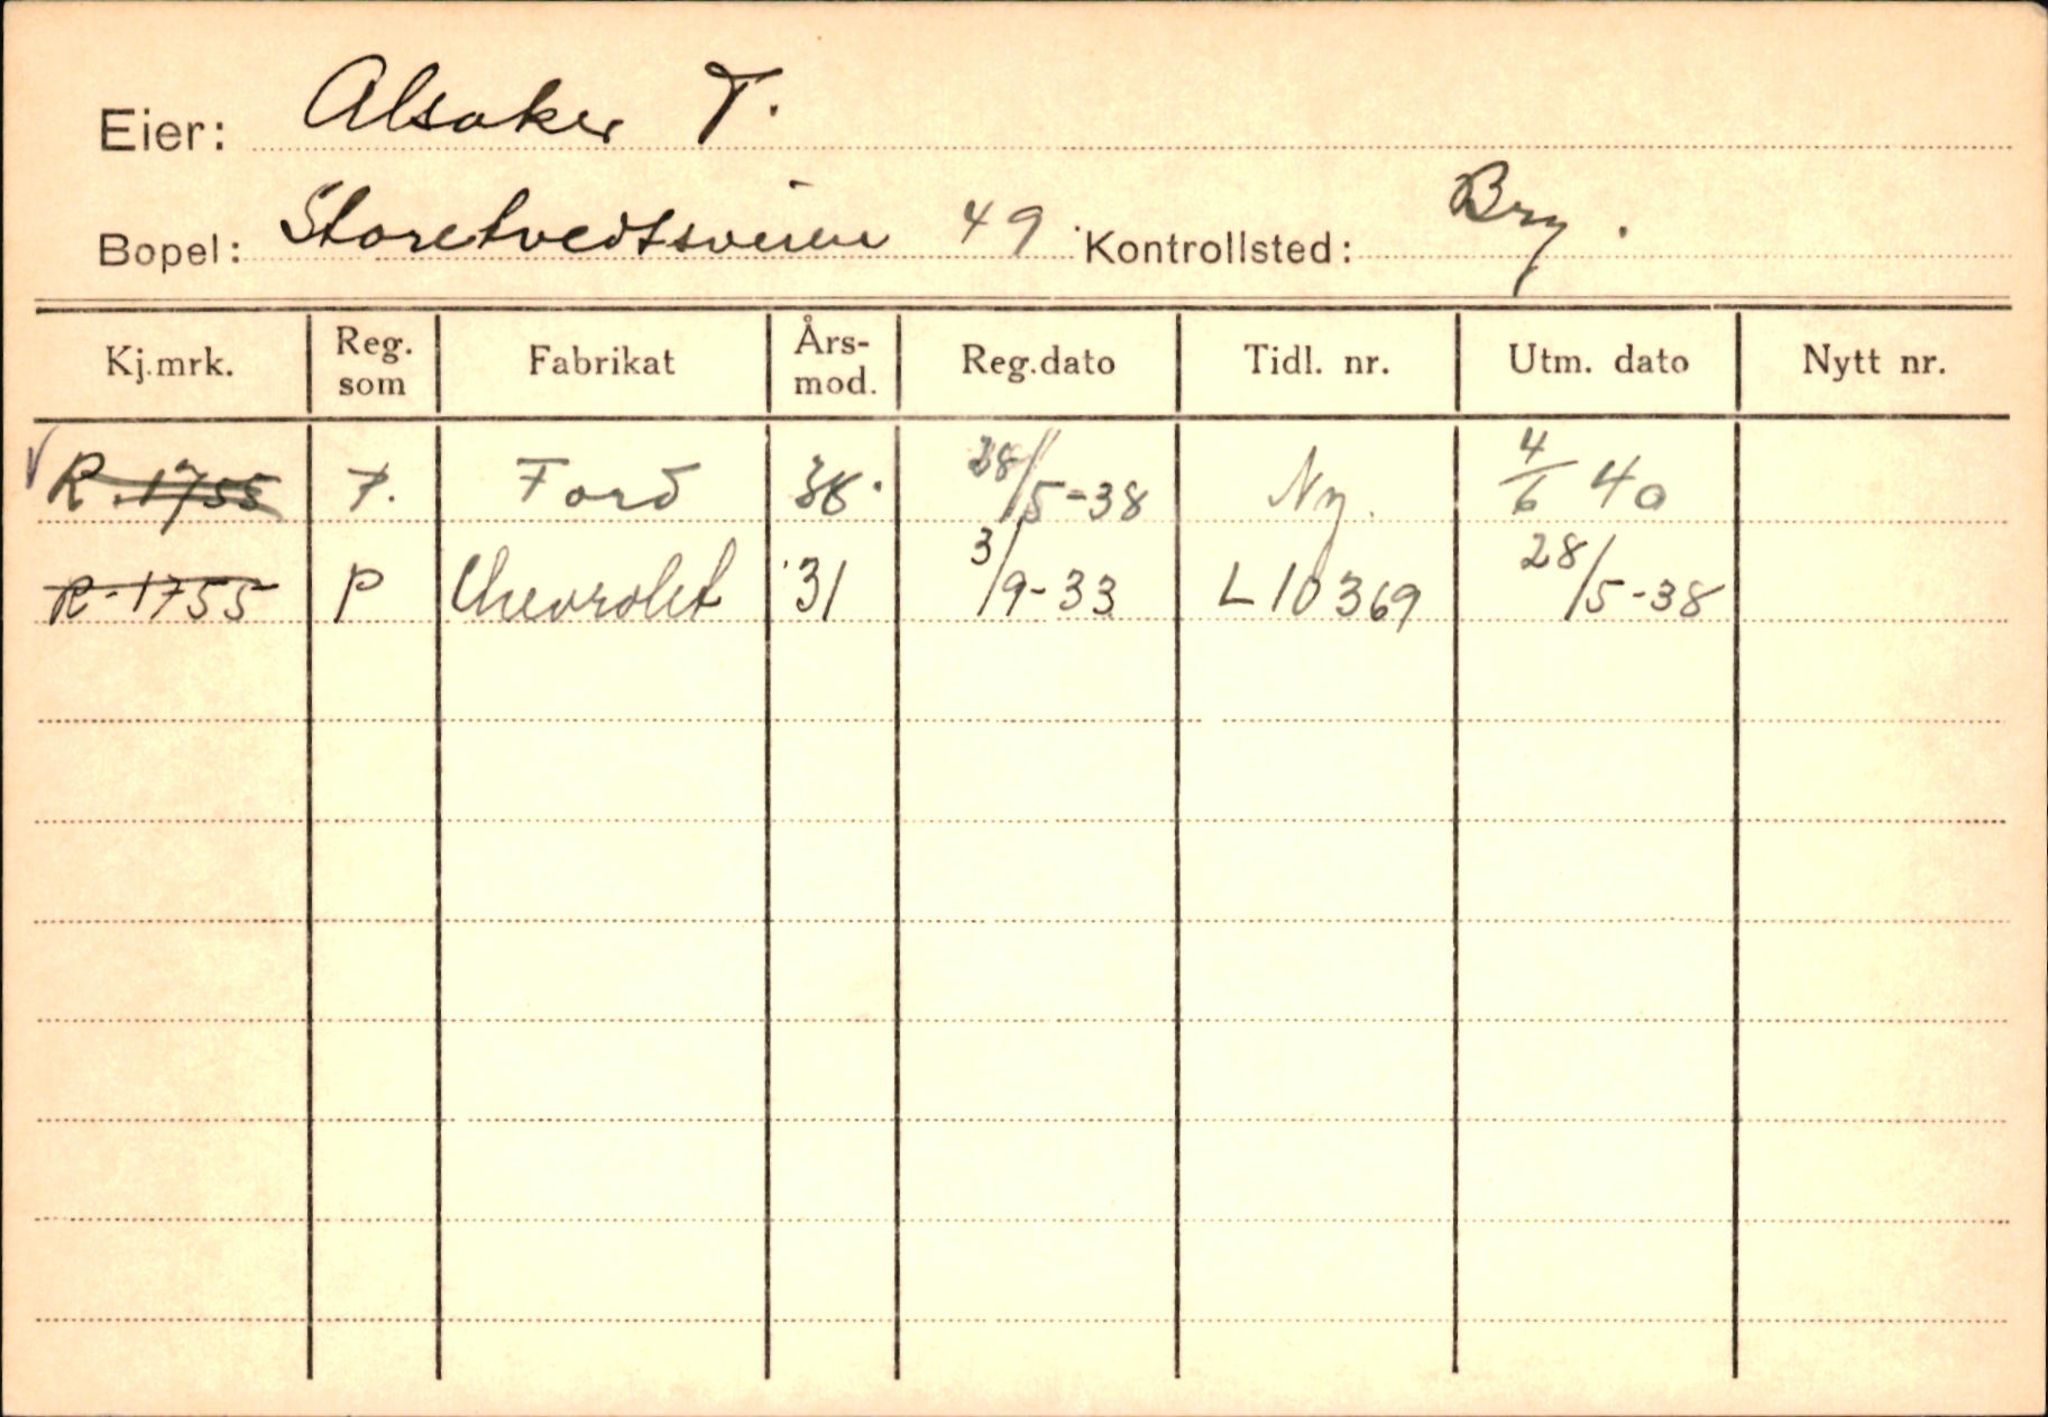 Eier: Alsaker T.
Bopel: Storetvedtsveien 49. Kontrollsted: Bry.
Kj.mrk. Reg. som Fabrikat Års-mod. Reg.dato Tidl. nr. Utm. dato Nytt nr.
R-1755 7. Ford 38. 28/5-38 Ny. 4/6 40
R-1755 P Chevrolet '31 3/9-33 L10369 28/5-38